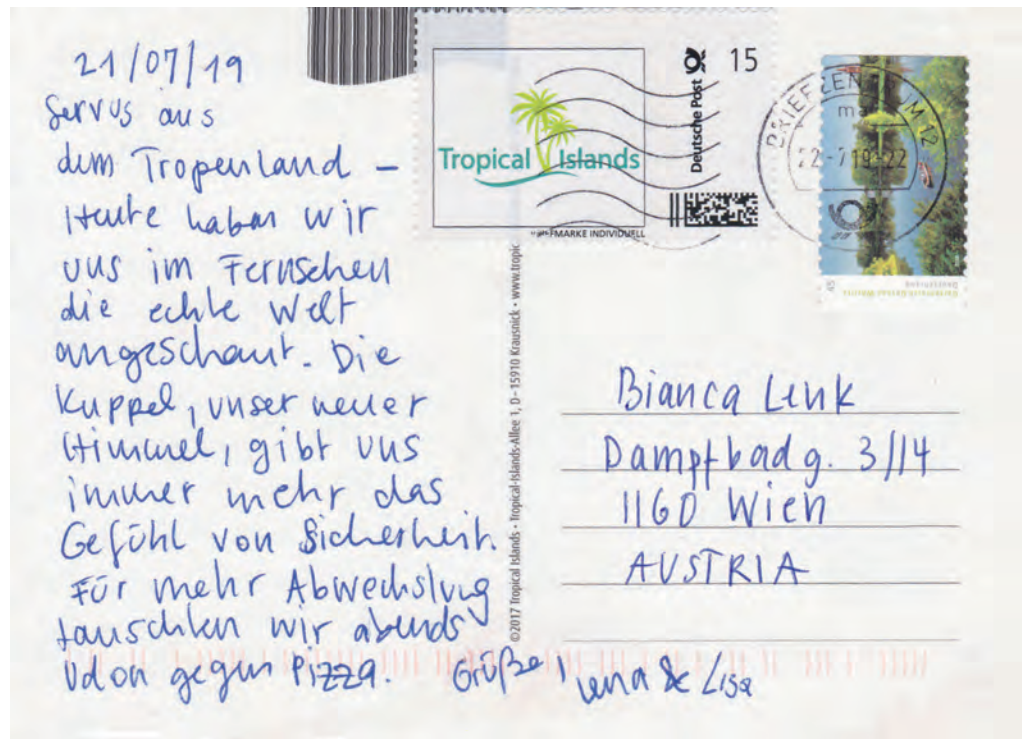 21/07/19
Servus aus
dem Tropenland –
Heute haben wir
uns im Fernsehen
die echte Welt
angeschaut. Die
Kuppel, unser neuer
Himmel, gibt uns
immer mehr das
Gefühl von Sicherheit.
Für mehr Abwechslung
tauschten wir abends
Udon gegen Pizza. Grüße, Lena & Lisa
Tropical Islands
Deutsche Post
15
MARKE INDIVIDUELL
BRIEFZENTRUM 12
22.-7.19-22
45
Deutschland
©2017 Tropical Islands • Tropical-Islands-Allee 1, D-15910 Krausnick • www.tropic
Bianca Link
Dampfbadg. 3/14
1160 Wien
AUSTRIA